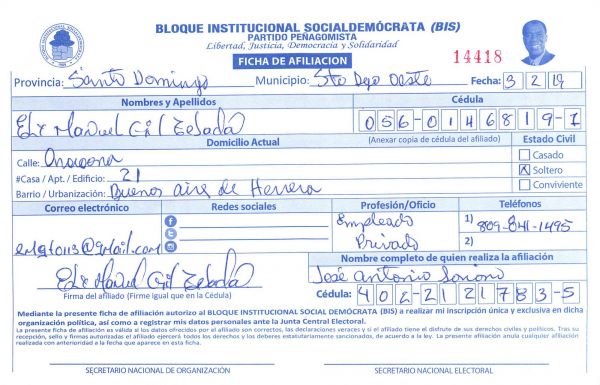 BLOQUE INSTITUCIONAL SOCIALDEMÓCRATA (BIS)
PARTIDO PEÑAGOMISTA
Libertad, Justicia, Democracia y Solidaridad
FICHA DE AFILIACION
14418
Provincia: Santo Domingo Municipio: Sto Dgo Oeste Fecha: 3 2 19
Nombres y Apellidos Cédula
Manuel Gil 056-0146819-1
Domicilio Actual (Anexar copia de cédula del afiliado) Estado Civil
Calle: Anacaona Casado
#Casa / Apt. / Edificio: 21 X Soltero
Barrio / Urbanización: Buenos aire de Herrera Conviviente
Correo electrónico Redes sociales Profesión/Oficio Teléfonos
Empleado 1) 809-841-1495
Privado 2)
@gmail.com
Nombre completo de quien realiza la afiliación
Manuel Gil José Antonio
Firma del afiliado (Firme igual que en la Cédula) Cédula: 402-2121783-5
Mediante la presente ficha de afiliación autorizo al BLOQUE INSTITUCIONAL SOCIAL DEMÓCRATA (BIS) a realizar mi inscripción única y exclusiva en dicha
organización política, así como a registrar mis datos personales ante la Junta Central Electoral.
La presente ficha de afiliación es válida si los datos ofrecidos por el afiliado son correctos, las declaraciones veraces y si el afiliado tiene el disfrute de sus derechos civiles y políticos. Tras su
recepción, sello y firmas autorizadas el afiliado ejercerá todos los derechos y los deberes estatutariamente sancionados, de acuerdo a la ley. La presente afiliación anula cualquier afiliación
realizada con anterioridad a la fecha que aparece en esta ficha.
SECRETARIO NACIONAL DE ORGANIZACIÓN SECRETARIO NACIONAL ELECTORAL